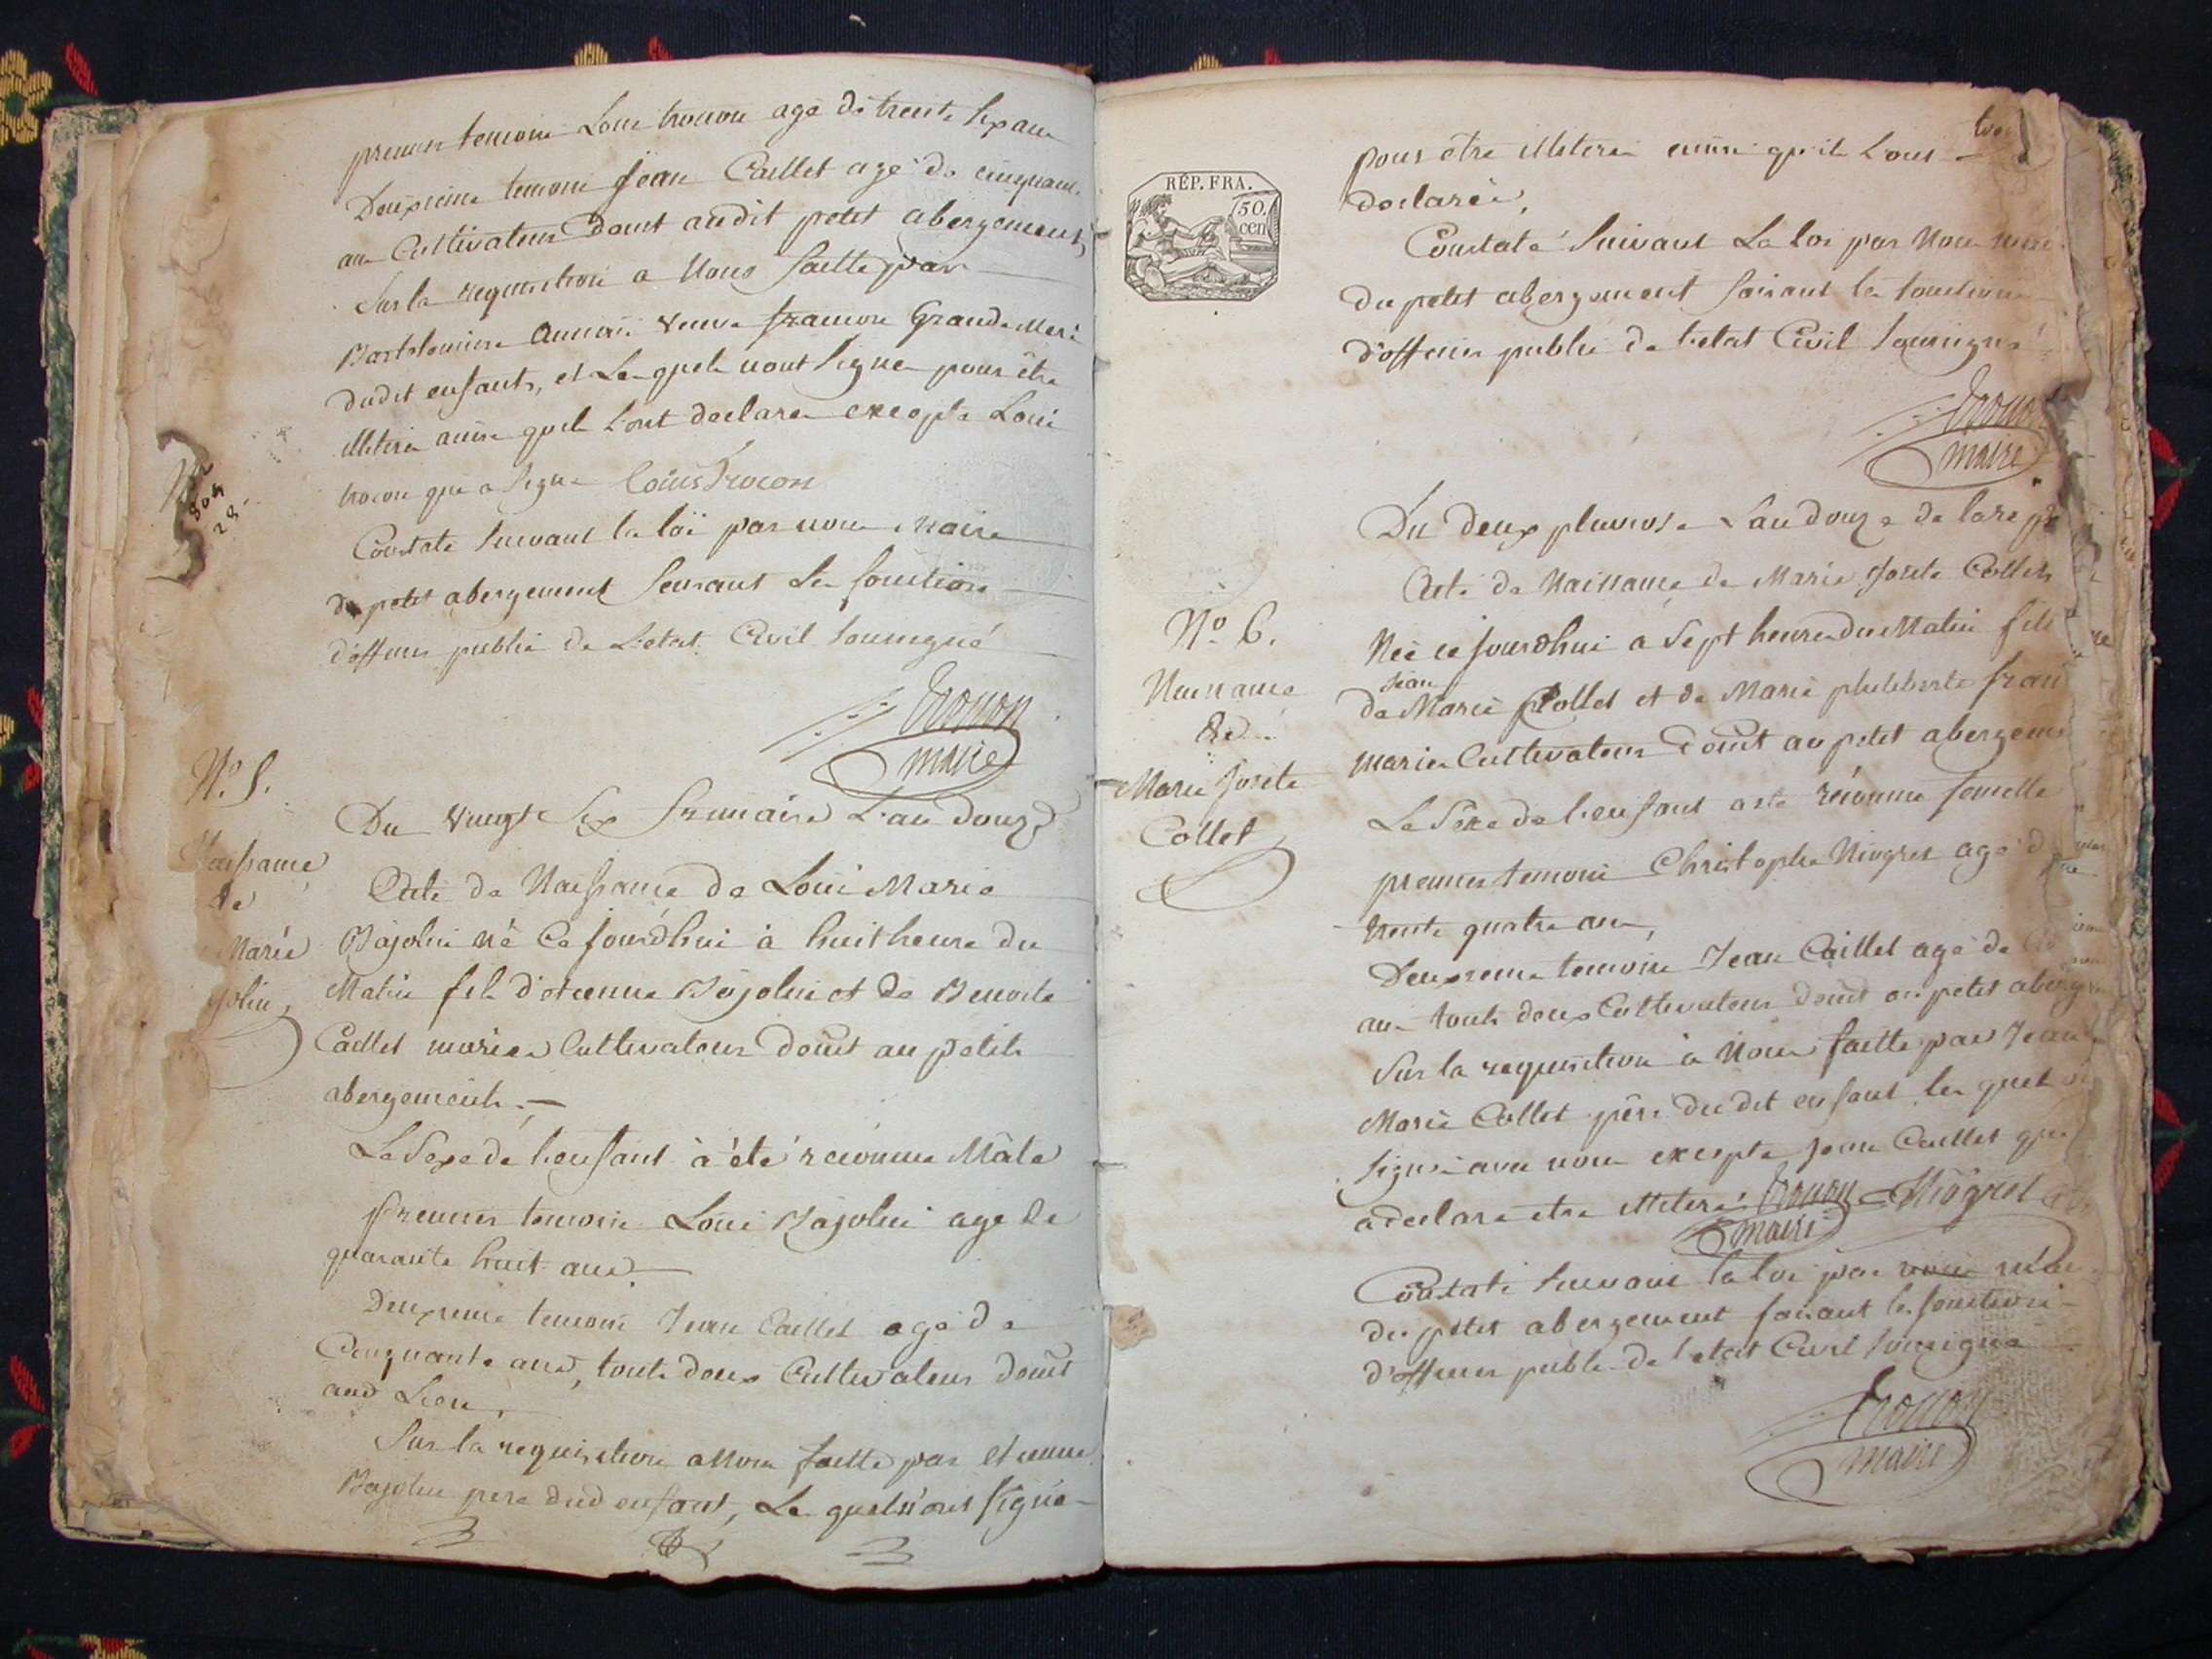 premier temoin Loui trocon agé de trente six ans
Deuxieme temoin Jean Caillet agé de cinquante
ans Cultivateurs domt audit petit abergement,
Sur la requisition a Nous faitte par
veuve Grande Mere
dudit enfants, et Lesquels nont signer pour être
illiteré ainsi quils l'ont declarer excepte Loui
trocon qui a signe Louis Trocon
Constaté suivant la loi par nous Maire
du petit abergement faisant les fonctions
d'officier public de L'etat Civil soussigné
Trocon
maire
N.º 5.
Naissance
de
Marie
jolin,
Du vingt Six frimaire L'an douze
Acte de Naissance de Loui Marie
Bajolin né Ce jourdhui à huit heure du
Matin fils d'etienne Bajolin et de Benoite
Caillet mariés Cultivateurs domt au petit
abergement.
Le Sexe de l'enfant à été reconnu Mâle
premier temoin Loui Bajolin age de
quarante huit ans
Deuxieme temoin Jean Caillet age de
Cinquante ans, touts deux Cultivateurs domt
aud Lieu,
Sur la requisition a Nous faitte par etienne
Bajolin pere dud enfant, Les quels n'ont signé
RÉP. FRA.
50.
cen
pour être illiteré ainsi qu'il L'ont
declarée,
Constaté suivant La loi par Nous
du petit abergement faisant les fonctions
d'officier public de l'etat Civil soussigné
Trocon
maire
N.º 6.
Naissance
de
Marie Josete
Collet
Du deux pluviose L'an douze de la rep
Acte de Naissance de Marie Josete Collet
Née ce jourdhui a Sept heure du Matin fille
Jean
de Marie Collet et de Marie philiberte
mariés Cultivateurs domt au petit abergement
Le Sexe de l'enfant a ete réconnu femelle
premier temoin Christophe Niogret agé de
trente quatre ans,
Deuxieme temoin Jean Caillet agé de
ans touts deux Cultivateurs domt au petit aberg
Sur la requisition à Nous faitte par Jean
Marie Collet père du dit enfant les quel
signé avec nous excepte Jean Caillet qui
a declaré etre illiteré Trocon Niogret
maire
Constaté suivant la loi par nous maire
du petit abergement faisant les fonctions
d'officier public de l'etat Civil soussigné
Trocon
maire